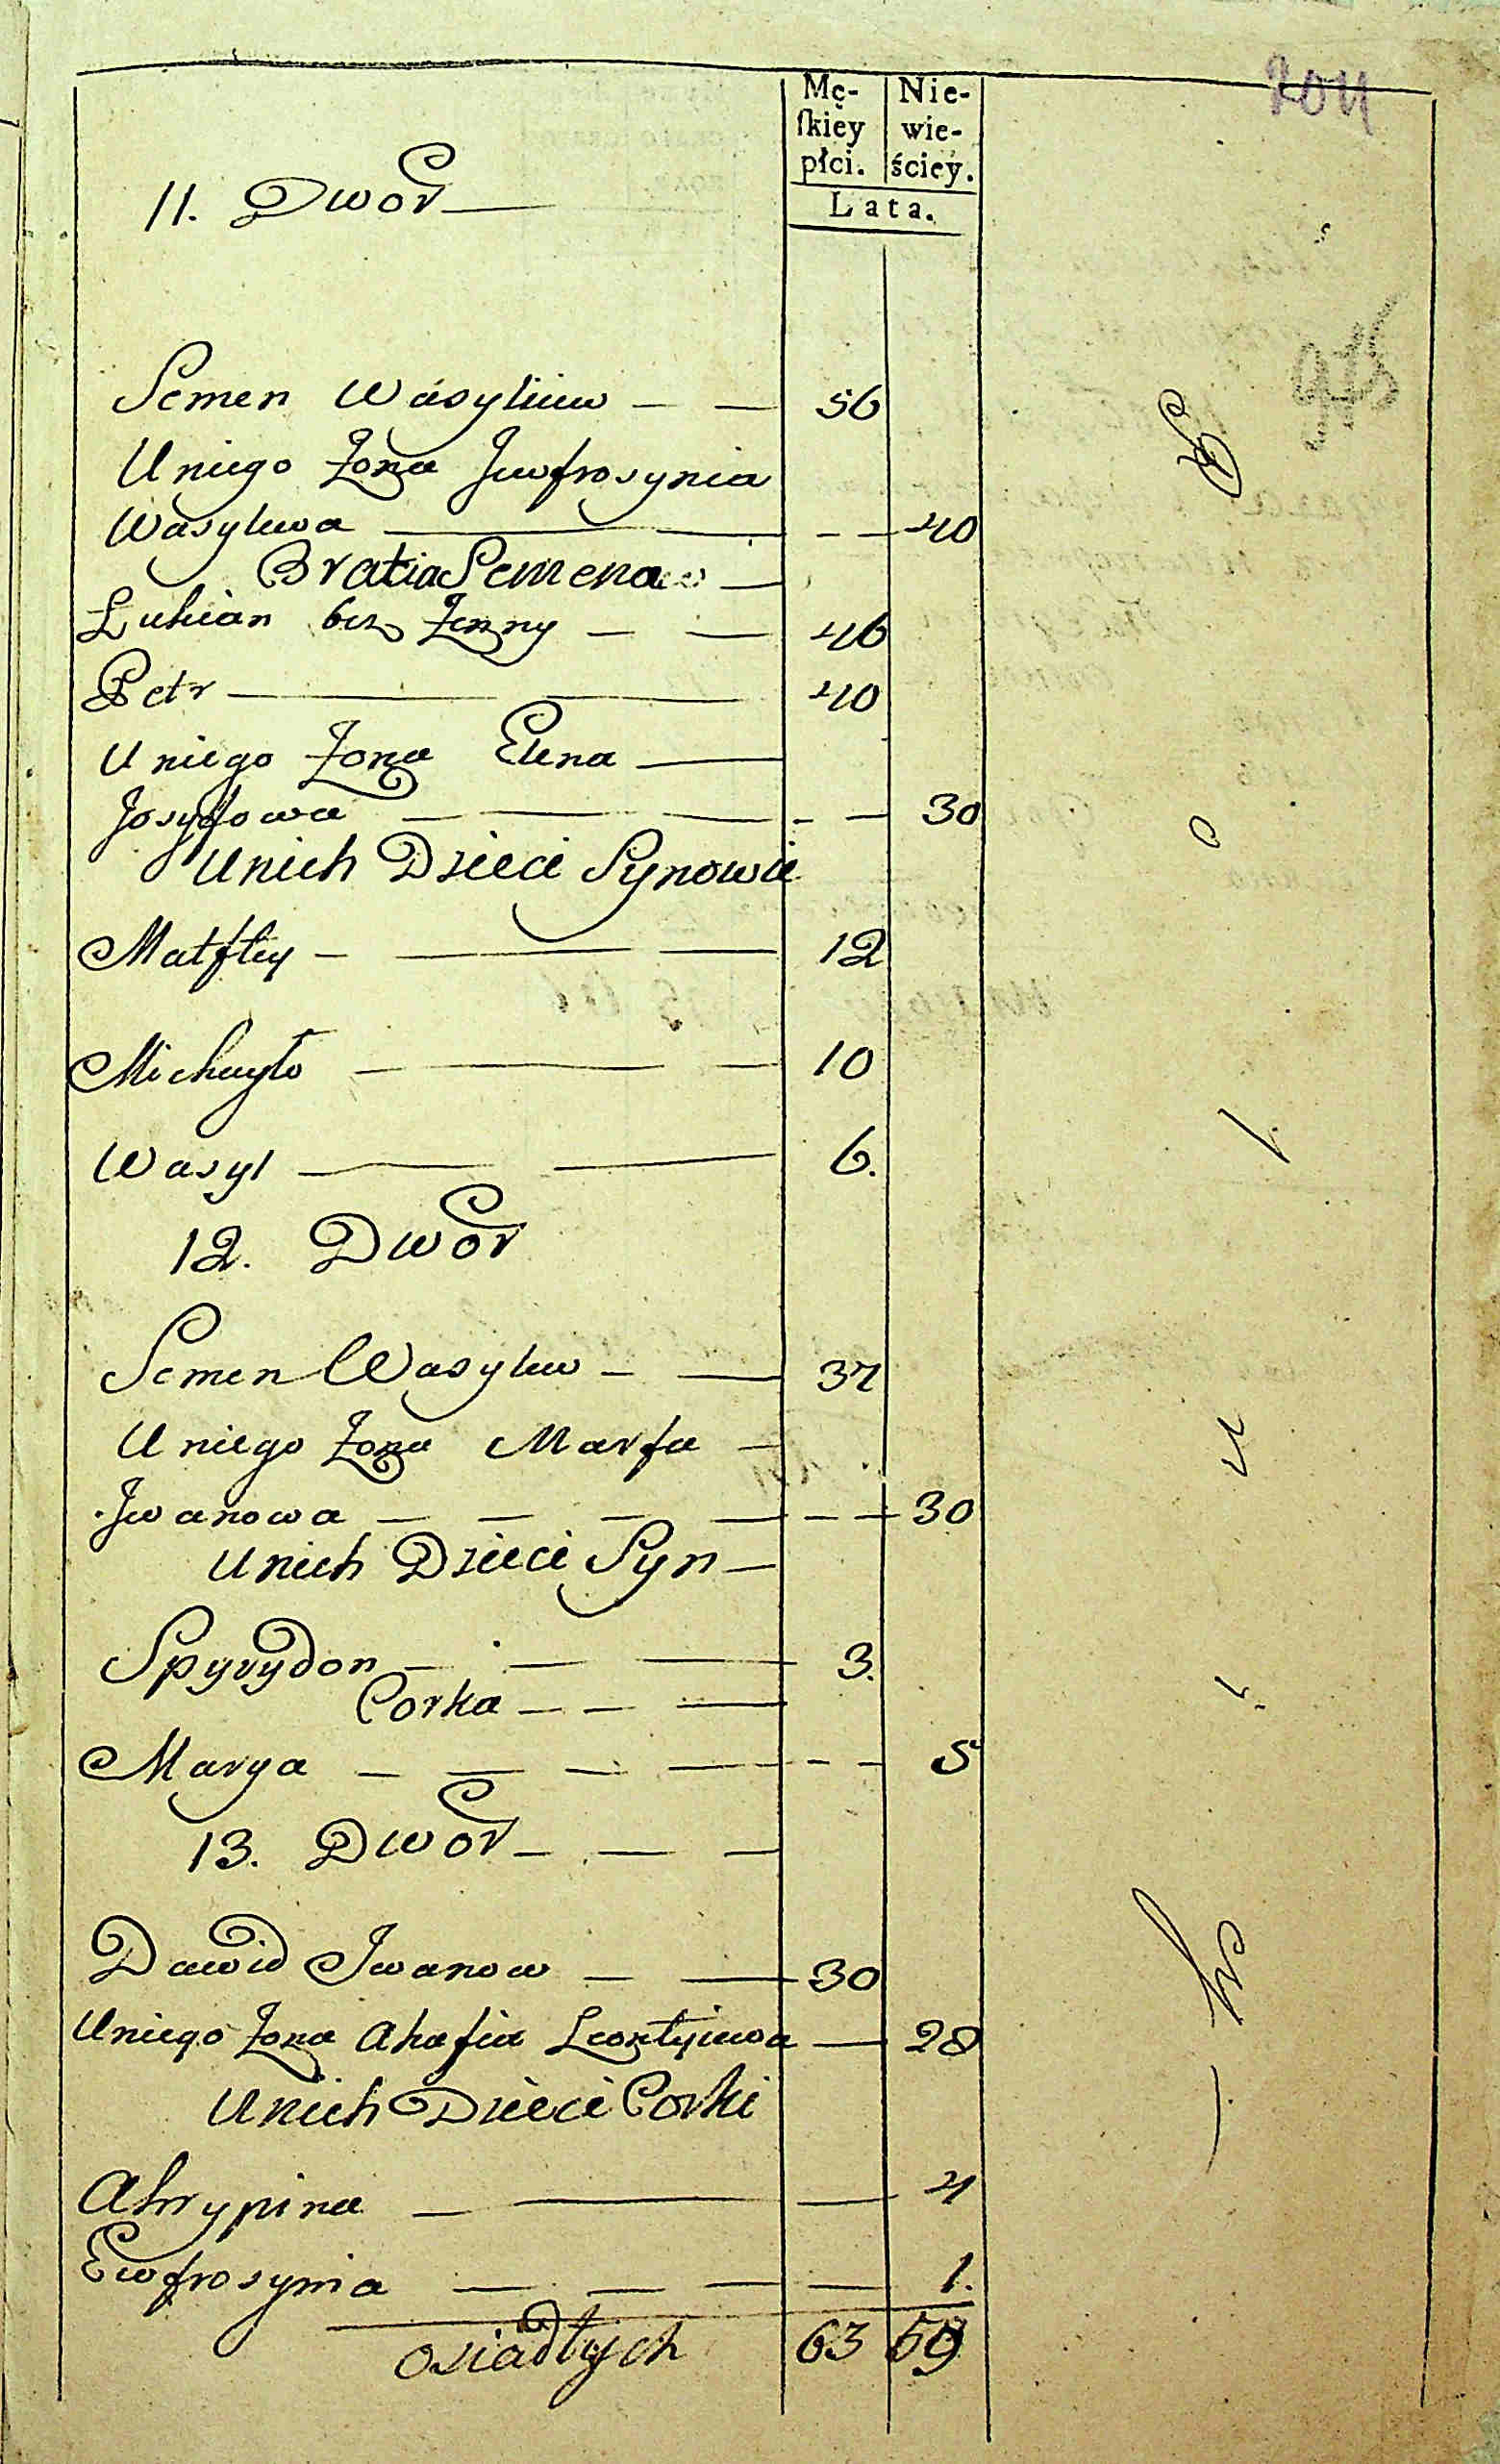 Mę-
skiey
płci.
Nie-
wie-
ściey.
Lata.
11. Dwor
Semen Wásyliuw 56
Uniego Żona Juwfrosynia
Wasylewa 40
Bratia Semena
Lukian bez Żenny 46
Petr 40
Uniego Żona Elena
Josyfowa 30
Unich Dzieci Synowie
Matftey 12
Michayło 10
Wasyl 6.
12. Dwor
Semen Wasylew 37
Uniego Żona Marfa
Jwanowa 30
Unich Dzieci Syn
Spyrydon 3.
Corka
Marya 5
13. Dwor
Dawid Jwanow 30
Uniego Żona Ahafia Leontyiewa 28
Unich Dzieci Corki
Ahrypina 4
Ewfrosynia 1.
osiadłych 63 59